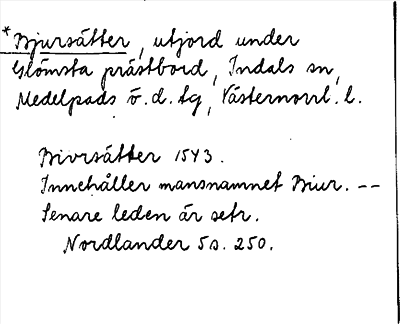 *Bjursätter, utjord under
Glömsta prästbord, Indals sn,
Medelpads ö.d. tg, Västernorrl. l.
Biursätter 1543.
Innehåller mansnamnet Biur. --
Senare leden är setr.
Nordlander 5 s. 250.